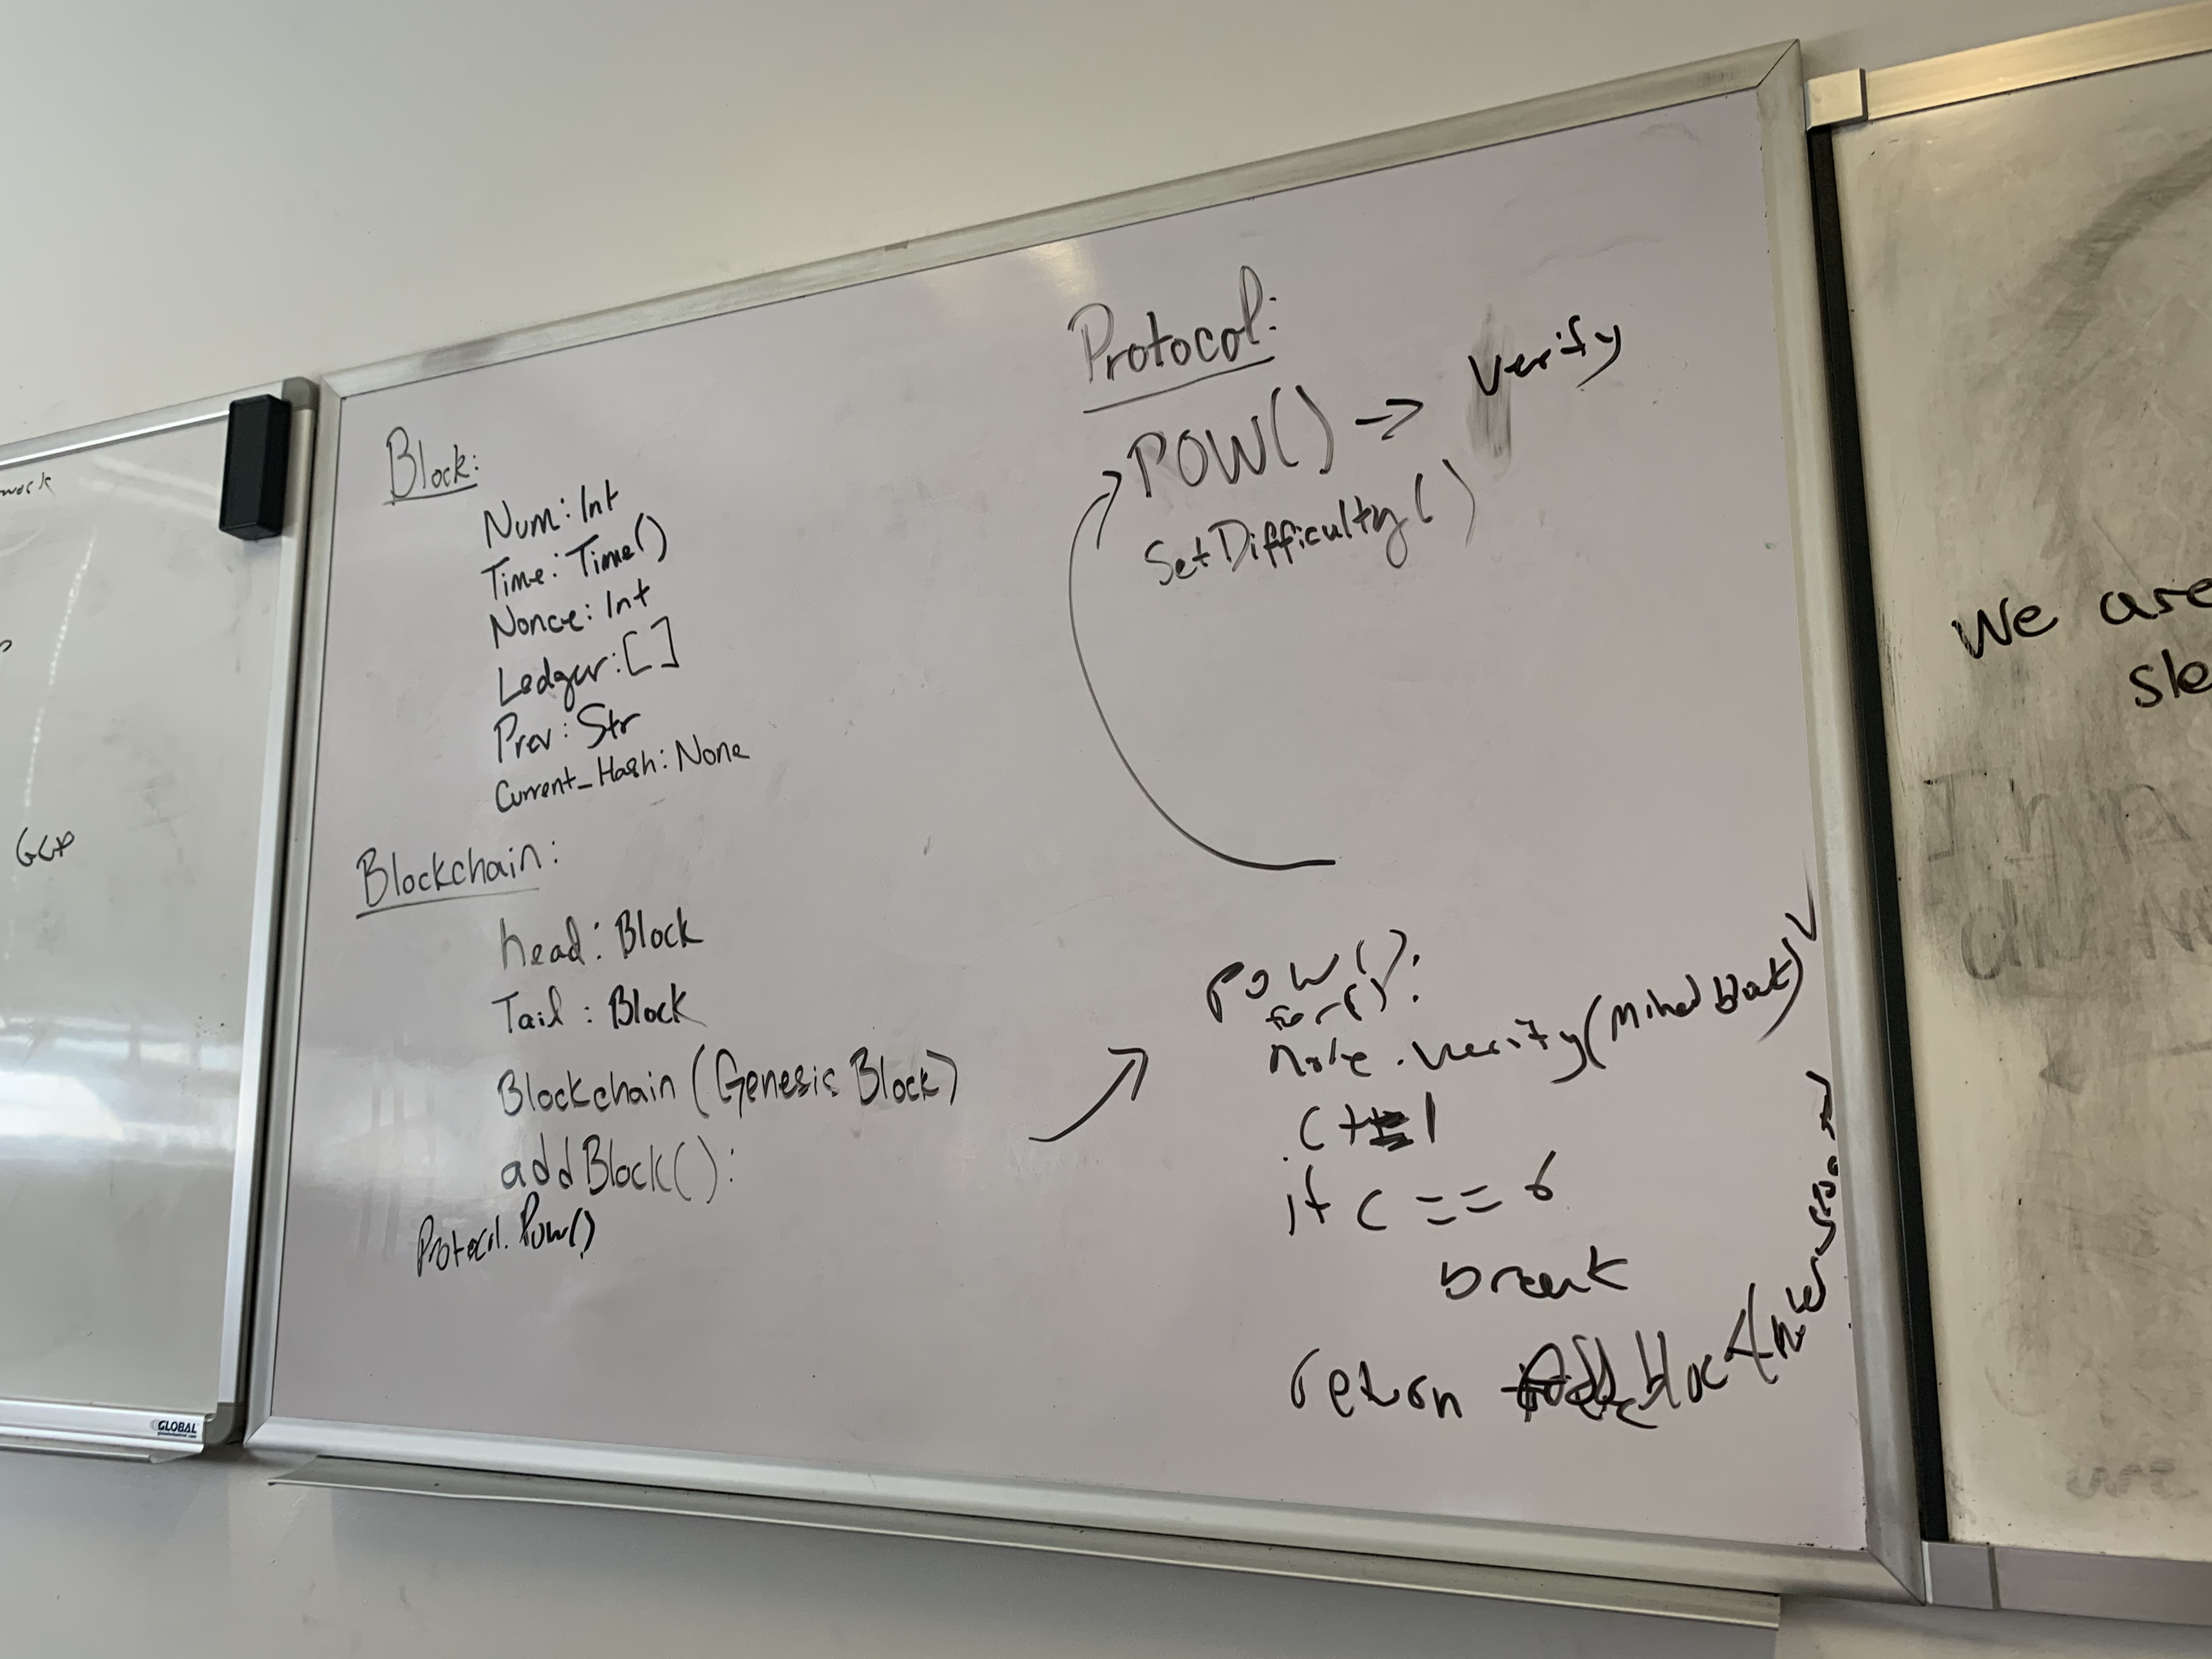 Block:
Num: Int
Time: Time()
Nonce: Int
Ledger: []
Prev: Str
Current_Hash: None
Blockchain:
head: Block
Tail: Block
Blockchain (Genesis Block)
addBlock():
Protocol.Pow()
Protocol:
POW() -> Verify
SetDifficulty()
POW():
for():
.verify(Mined block)
if c == 6
break
return
We are
GLOBAL